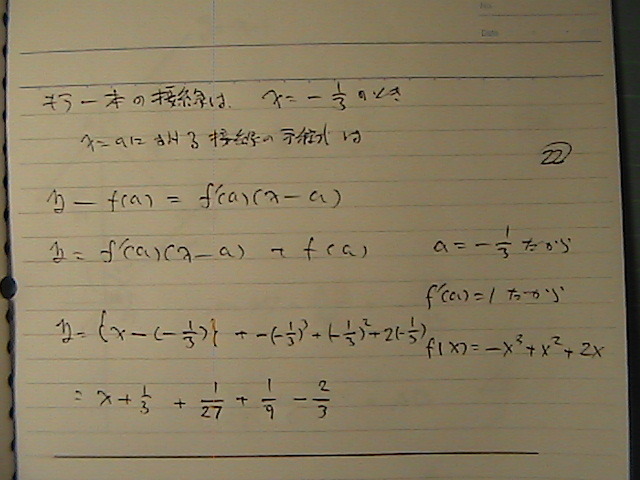 No.
Date
もう一本の接線は、 x = -1/3 のとき
x=aにおける接線の方程式は
22
y - f(a) = f'(a)(x - a)
y = f'(a)(x - a) + f(a)   a = -1/3 だから
f'(a) = 1 だから
y = {x - (-1/3)} + -(-1/3)³ + (-1/3)² + 2(-1/3)   f(x) = -x³ + x² + 2x
= x + 1/3 + 1/27 + 1/9 - 2/3